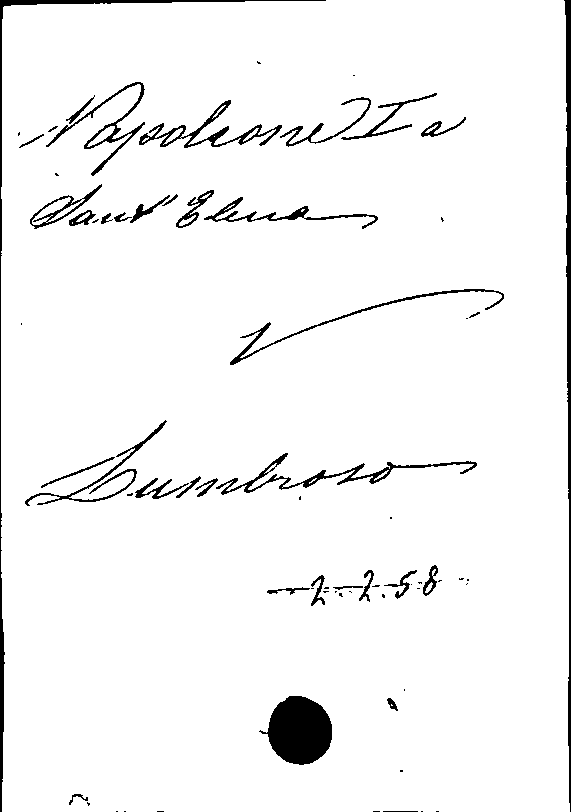 Napoleone I a
Sant' Elena
V
Lumbroso
2.2.58